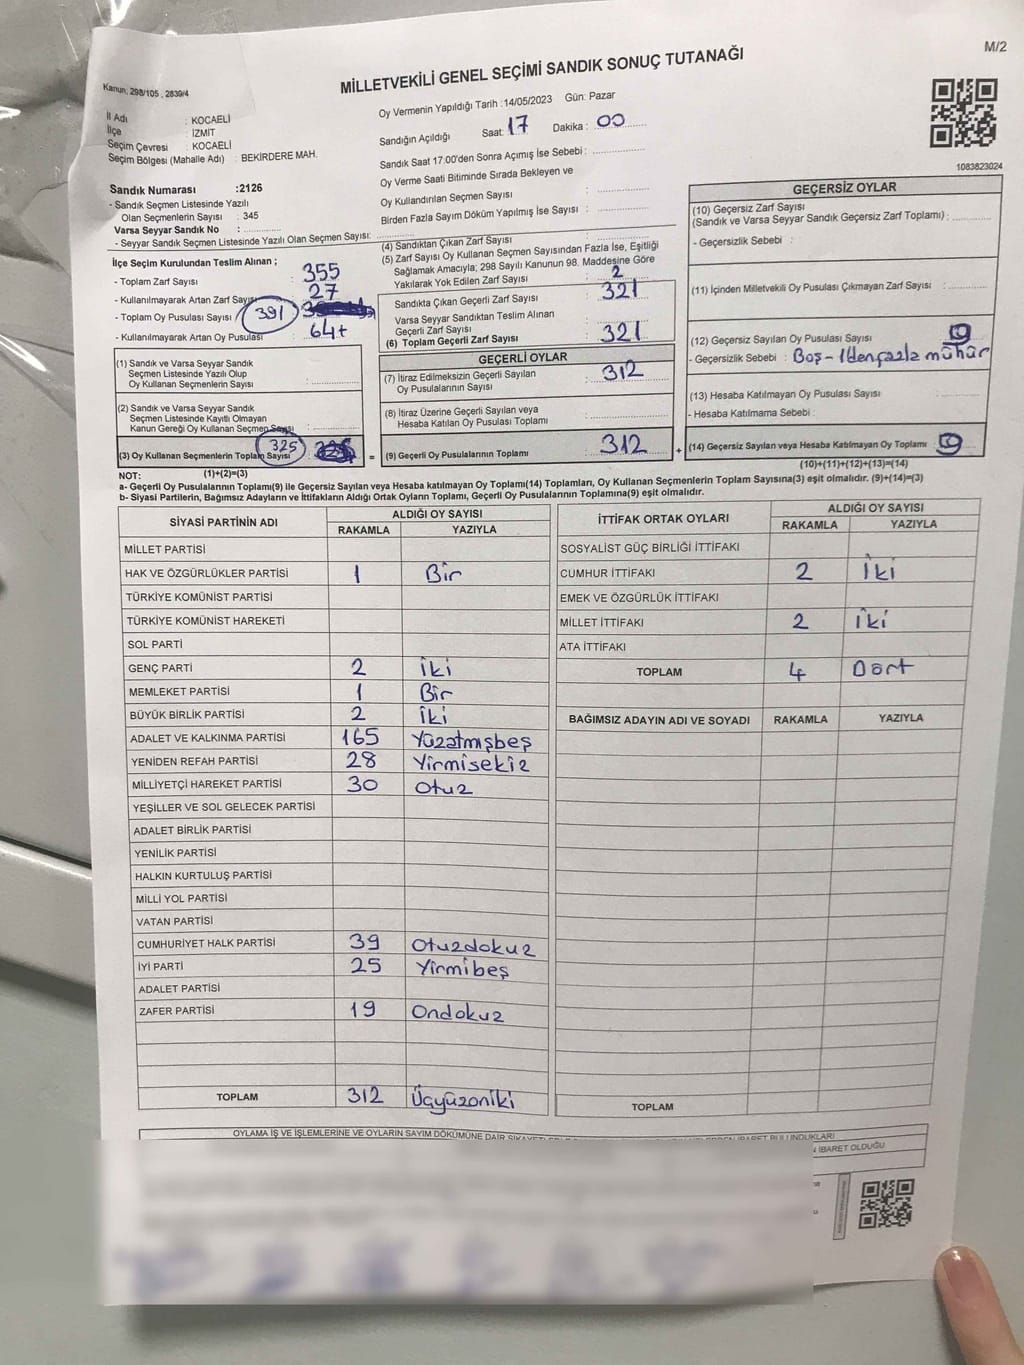 M/2
MİLLETVEKİLİ GENEL SEÇİMİ SANDIK SONUÇ TUTANAĞI
Kanun: 298/105 , 2839/4
İl Adı : KOCAELİ
İlçe : İZMİT
Seçim Çevresi : KOCAELİ
Seçim Bölgesi (Mahalle Adı) : BEKİRDERE MAH.
Oy Vermenin Yapıldığı Tarih :14/05/2023 Gün: Pazar
Sandığın Açıldığı Saat: 17 Dakika : 00
Sandık Saat 17:00'den Sonra Açımış İse Sebebi :
Oy Verme Saati Bitiminde Sırada Bekleyen ve
Oy Kullandırılan Seçmen Sayısı :
Birden Fazla Sayım Döküm Yapılmış İse Sayısı :
1083823024
Sandık Numarası :2126
- Sandık Seçmen Listesinde Yazılı
Olan Seçmenlerin Sayısı : 345
Varsa Seyyar Sandık No :
- Seyyar Sandık Seçmen Listesinde Yazılı Olan Seçmen Sayısı:
İlçe Seçim Kurulundan Teslim Alınan ;
- Toplam Zarf Sayısı : 355
- Kullanılmayarak Artan Zarf Sayısı 27
- Toplam Oy Pusulası Sayısı 391
- Kullanılmayarak Artan Oy Pusulası : 64+
(1) Sandık ve Varsa Seyyar Sandık
Seçmen Listesinde Yazılı Olup
Oy Kullanan Seçmenlerin Sayısı :
(2) Sandık ve Varsa Seyyar Sandık
Seçmen Listesinde Kayıtlı Olmayan
Kanun Gereği Oy Kullanan Seçmen Sayısı
(3) Oy Kullanan Seçmenlerin Toplam Sayısı 325 =
(1)+(2)=(3)
(4) Sandıktan Çıkan Zarf Sayısı :
(5) Zarf Sayısı Oy Kullanan Seçmen Sayısından Fazla İse, Eşitliği
Sağlamak Amacıyla; 298 Sayılı Kanunun 98. Maddesine Göre
Yakılarak Yok Edilen Zarf Sayısı : 2
Sandıkta Çıkan Geçerli Zarf Sayısı : 321
Varsa Seyyar Sandıktan Teslim Alınan
Geçerli Zarf Sayısı :
(6) Toplam Geçerli Zarf Sayısı : 321
GEÇERLİ OYLAR
(7) İtiraz Edilmeksizin Geçerli Sayılan
Oy Pusulalarının Sayısı : 312
(8) İtiraz Üzerine Geçerli Sayılan veya
Hesaba Katılan Oy Pusulası Toplamı :
(9) Geçerli Oy Pusulalarının Toplamı : 312 +
GEÇERSİZ OYLAR
(10) Geçersiz Zarf Sayısı
(Sandık ve Varsa Seyyar Sandık Geçersiz Zarf Toplamı) :
- Geçersizlik Sebebi :
(11) İçinden Milletvekili Oy Pusulası Çıkmayan Zarf Sayısı :
(12) Geçersiz Sayılan Oy Pusulası Sayısı : 9
- Geçersizlik Sebebi : Boş - 1'den fazla mühür
(13) Hesaba Katılmayan Oy Pusulası Sayısı :
- Hesaba Katılmama Sebebi :
(14) Geçersiz Sayılan veya Hesaba Katılmayan Oy Toplamı : 9
(10)+(11)+(12)+(13)=(14)
NOT:
a- Geçerli Oy Pusulalarının Toplamı(9) ile Geçersiz Sayılan veya Hesaba katılmayan Oy Toplamı(14) Toplamları, Oy Kullanan Seçmenlerin Toplam Sayısına(3) eşit olmalıdır. (9)+(14)=(3)
b- Siyasi Partilerin, Bağımsız Adayların ve İttifakların Aldığı Ortak Oyların Toplamı, Geçerli Oy Pusulalarının Toplamına(9) eşit olmalıdır.
SİYASİ PARTİNİN ADI ALDIĞI OY SAYISI
RAKAMLA YAZIYLA
MİLLET PARTİSİ
HAK VE ÖZGÜRLÜKLER PARTİSİ 1 Bir
TÜRKİYE KOMÜNİST PARTİSİ
TÜRKİYE KOMÜNİST HAREKETİ
SOL PARTİ
GENÇ PARTİ 2 İki
MEMLEKET PARTİSİ 1 Bir
BÜYÜK BİRLİK PARTİSİ 2 İki
ADALET VE KALKINMA PARTİSİ 165 Yüzatmışbeş
YENİDEN REFAH PARTİSİ 28 Yirmisekiz
MİLLİYETÇİ HAREKET PARTİSİ 30 Otuz
YEŞİLLER VE SOL GELECEK PARTİSİ
ADALET BİRLİK PARTİSİ
YENİLİK PARTİSİ
HALKIN KURTULUŞ PARTİSİ
MİLLİ YOL PARTİSİ
VATAN PARTİSİ
CUMHURİYET HALK PARTİSİ 39 Otuzdokuz
İYİ PARTİ 25 Yirmibeş
ADALET PARTİSİ
ZAFER PARTİSİ 19 Ondokuz
TOPLAM 312 Üçyüzoniki
İTTİFAK ORTAK OYLARI ALDIĞI OY SAYISI
RAKAMLA YAZIYLA
SOSYALİST GÜÇ BİRLİĞİ İTTİFAKI
CUMHUR İTTİFAKI 2 İki
EMEK VE ÖZGÜRLÜK İTTİFAKI
MİLLET İTTİFAKI 2 İki
ATA İTTİFAKI
TOPLAM 4 Dört
BAĞIMSIZ ADAYIN ADI VE SOYADI RAKAMLA YAZIYLA
TOPLAM
OYLAMA İŞ VE İŞLEMLERİNE VE OYLARIN SAYIM DÖKÜMÜNE DAİR
İBARET OLDUĞU